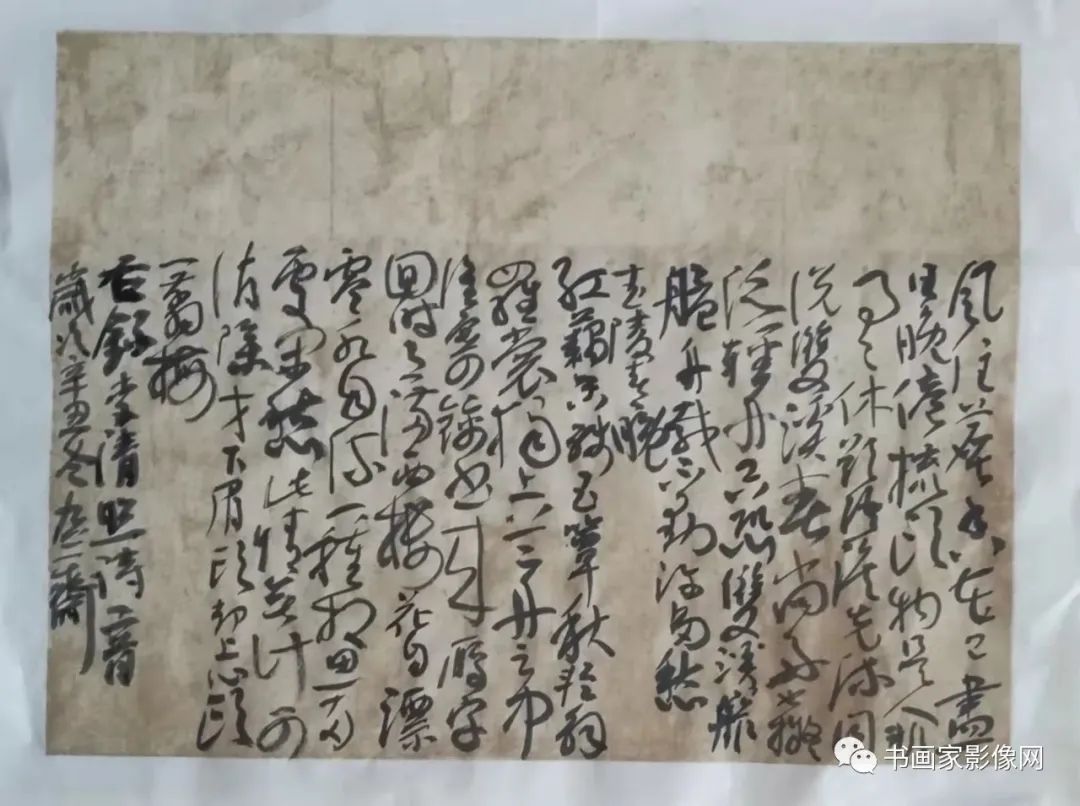 風住塵香花已盡
日晚倦梳頭物是人非
事事休欲語淚先流聞
說雙溪春尚好也擬
泛輕舟只恐雙溪舴
艋舟載不動許多愁
武陵春春晚
紅藕香殘玉簟秋輕解
羅裳獨上蘭舟雲中
誰寄錦書來雁字
回時月滿西樓花自漂
零水自流一種相思兩
處閑愁此情無計可
消除才下眉頭卻上心頭
一剪梅
右錄李清照詩二首
歲次辛丑冬齋
书画家影像网